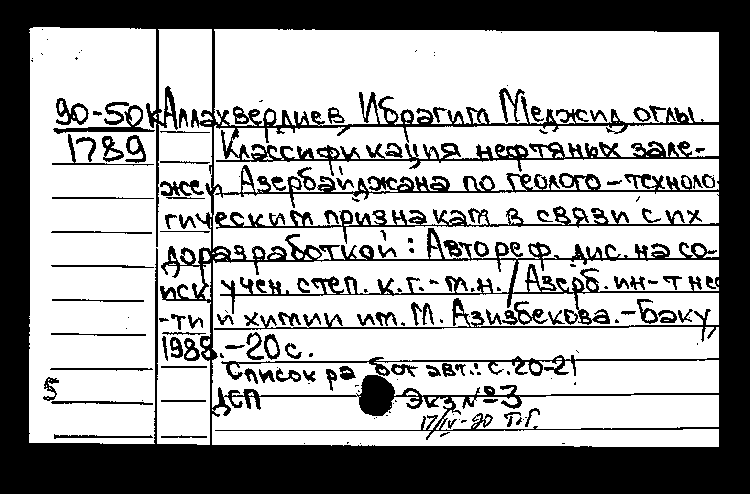 90-50к Аллахвердиев Ибрагим Меджид оглы.
1789 Классификация нефтяных зале-
жей Азербайджана по геолого-техноло
гическим признакам в связи с их
доразработкой: Автореф. дис. на со-
иск учен. степ. к.г.-м.н. / Азерб. ин-т неф
-ти и химии им. М. Азизбекова.-Баку,
1988.-20с.
Список работ авт.: с.20-21
5 ДСП Экз №3
17/IV-90